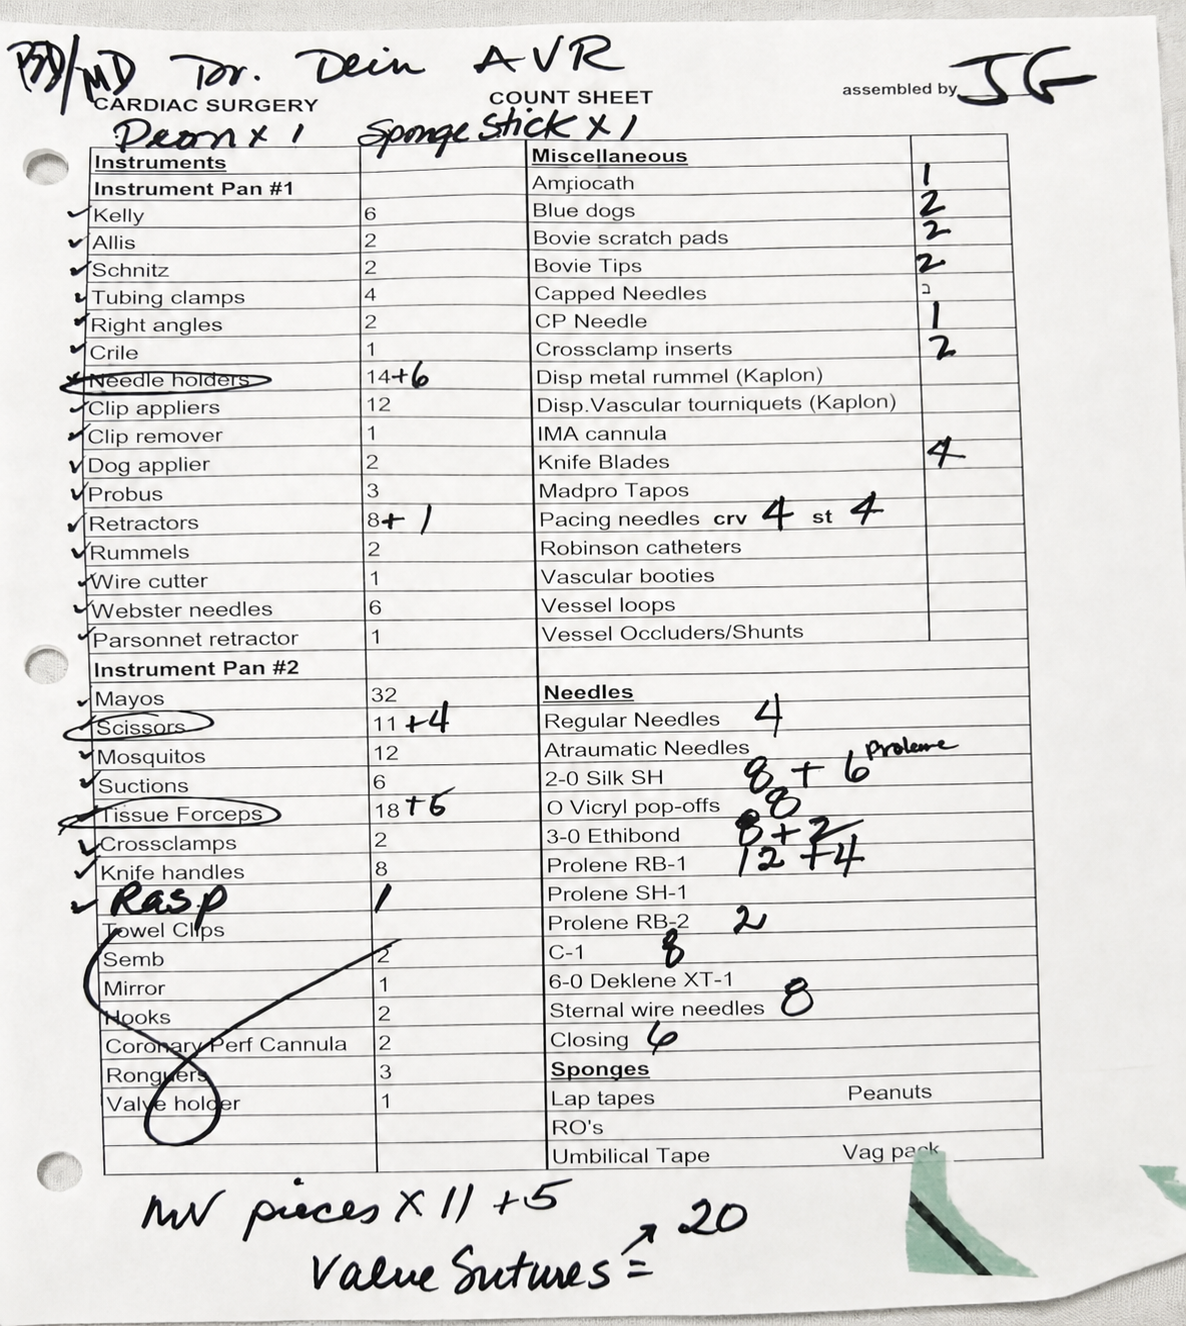 PSD/MD Dr. Dein AVR
CARDIAC SURGERY COUNT SHEET assembled by JG
x 1 Sponge Stick x 1
Instruments
Instrument Pan #1
Kelly 6
Allis 2
Schnitz 2
Tubing clamps 4
Right angles 2
Crile 1
Needle holders 14+6
Clip appliers 12
Clip remover 1
Dog applier 2
Probus 3
Retractors 8+ 1
Rummels 2
Wire cutter 1
Webster needles 6
Parsonnet retractor 1
Instrument Pan #2
Mayos 32
Scissors 11 +4
Mosquitos 12
Suctions 6
Tissue Forceps 18
Crossclamps 2
Knife handles 8
Rasp 1
Towel Clips
Semb 2
Mirror 1
Hooks 2
Coronary Perf Cannula 2
Ronguers 3
Valve holder 1
Miscellaneous
Amjiocath 1
Blue dogs 2
Bovie scratch pads 2
Bovie Tips 2
Capped Needles
CP Needle 1
Crossclamp inserts 2
Disp metal rummel (Kaplon)
Disp.Vascular tourniquets (Kaplon)
IMA cannula
Knife Blades 4
Madpro Tapos
Pacing needles crv 4 st 4
Robinson catheters
Vascular booties
Vessel loops
Vessel Occluders/Shunts
Needles
Regular Needles 4
Atraumatic Needles
2-0 Silk SH 8 + 6 Prolene
O Vicryl pop-offs 8
3-0 Ethibond 8+2
Prolene RB-1 12 +4
Prolene SH-1
Prolene RB-2 2
C-1 8
6-0 Deklene XT-1
Sternal wire needles 8
Closing 6
Sponges
Lap tapes Peanuts
RO's
Umbilical Tape Vag pack
MV pieces x 11 +5
Value Sutures = 20